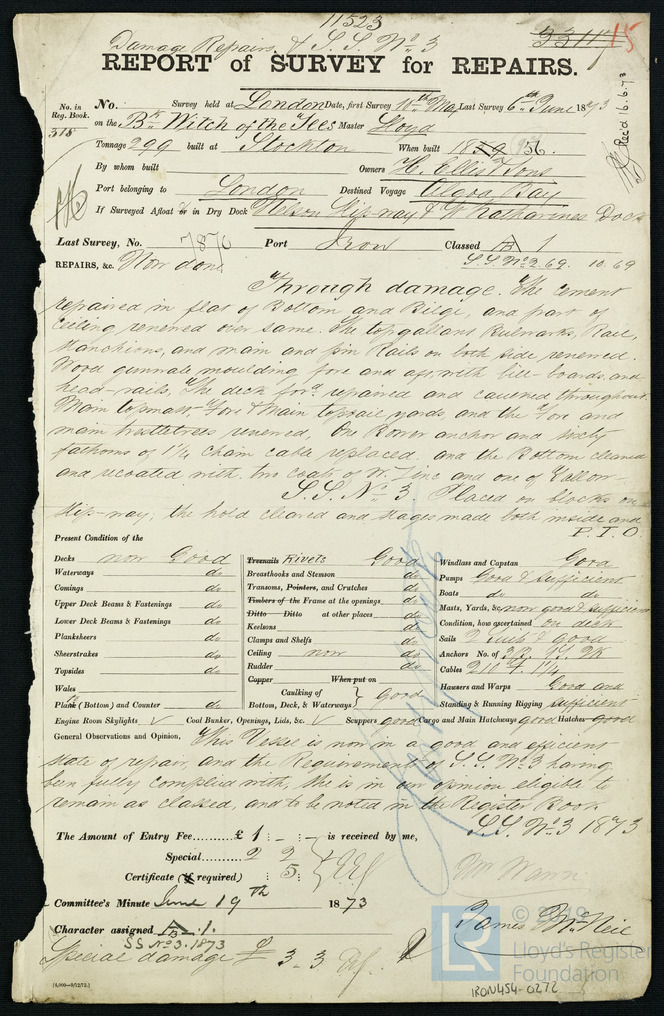 11523
Damage Repairs & S.S. No 3
15
REPORT of SURVEY for REPAIRS.
Rec'd 16.6.73
No. in Reg. Book.
No. Survey held at London Date, first Survey 10th May Last Survey 6th June 1873
on the Bk Witch of the Tees Master Lloyd
Tonnage 299 built at Stockton When built 1856
By whom built Owners H. Ellis & Sons
Port belonging to London Destined Voyage Algoa Bay
If Surveyed Afloat or in Dry Dock Nelson Slip-way & St Katharines Dock
Last Survey, No. 7876 Port Iron Classed A 1
S.S. No 2. 69. 10.69
REPAIRS, &c. Now done
Through damage. The cement
repaired in flat of Bottom and Bilge, and part of
Ceiling renewed over same. The topgallant Bulwarks, Rail,
Stanchions, and main and pin Rails on both side renewed.
Wood gunwale moulding fore and aft, with bill-boards, and
head-rails. The deck ford repaired and caulked throughout.
Main topmast, Fore & Main topsail yards and the Fore and
main trestletrees renewed, One Bower anchor and sixty
fathoms of 1 1/4 chain cable replaced, and the Bottom cleaned
and recoated with two coats of W. Zinc and one of Tallow.
S.S. No 3 Placed on blocks on
slip-way, the hold cleared and stages made both inside and
P.T.O.
Present Condition of the
Decks now Good
Waterways do
Comings do
Upper Deck Beams & Fastenings do
Lower Deck Beams & Fastenings do
Planksheers do
Sheerstrakes do
Topsides do
Wales
Plank (Bottom) and Counter do
Treenails Rivets Good
Breasthooks and Stemson do
Transoms, Pointers, and Crutches do
Timbers of the Frame at the openings do
Ditto Ditto at other places do
Keelsons do
Clamps and Shelfs do
Ceiling now do
Rudder do
Copper When put on
Caulking of Bottom, Deck, & Waterways } Good
Windlass and Capstan Good
Pumps Good & Sufficient
Boats do do
Masts, Yards, &c. now good & sufficient
Condition, how ascertained on deck
Sails 2 Suits & good
Anchors No. of 3B. 1S. 2K
Cables 210 F. 1 1/4
Hawsers and Warps Good and
Standing & Running Rigging sufficient
Engine Room Skylights ✓ Coal Bunker, Openings, Lids, &c. ✓ Scuppers good Cargo and Main Hatchways good Hatches good
General Observations and Opinion, This Vessel is now in a good and efficient
state of repair, and the Requirements of S.S. No 3 having
been fully complied with, she is in our opinion eligible to
remain as classed, and to be noted in the Register Book
S.S. No 3 1873
The Amount of Entry Fee......... £ 1 : - : - is received by me,
Special...... 2 2
Certificate (if required) : 5 :
Committee's Minute June 19th 1873
James McNeil
Character assigned A 1.
SS No 3. 1873
Special damage £ 3-3
© 2019
LR
Lloyd's Register
Foundation
IRON454-0272